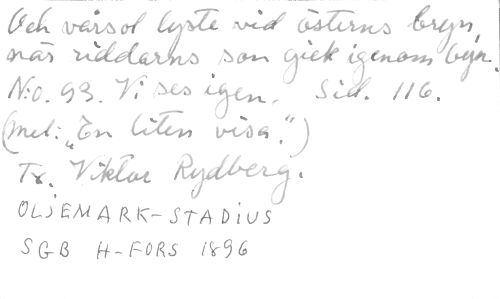 Och vårsol lyste vid österns bryn,
när riddarns son gick igenom byn.
N:o. 93. Vi ses igen. Sid. 116.
(mel: „En liten visa.")
Tr. Viktor Rydberg.
OLJEMARK-STADIUS
SGB H-FORS 1896